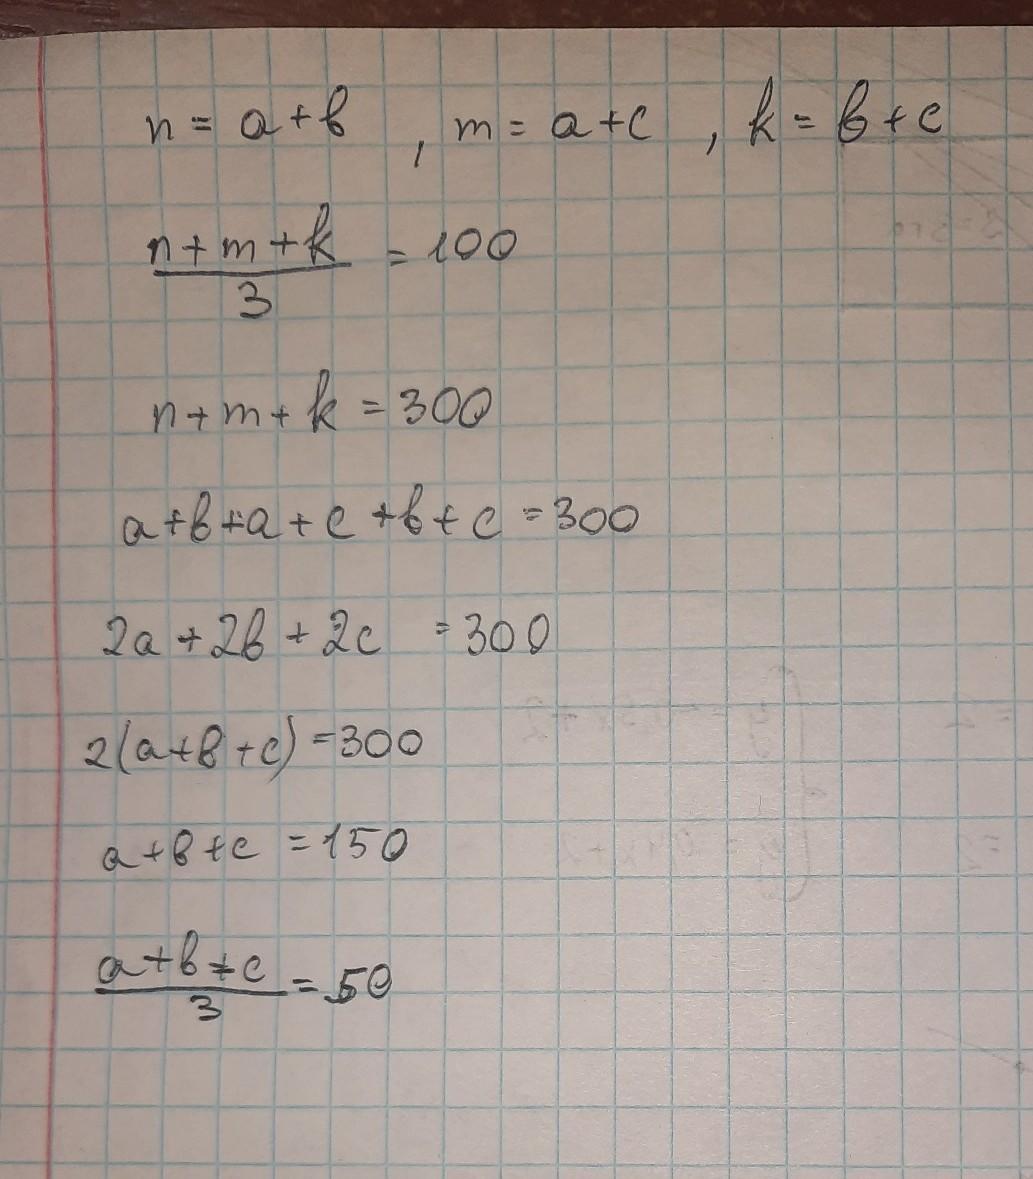 n = a + b , m = a + c , k = b + c
n + m + k
3
= 100
n + m + k = 300
a + b + a + c + b + c = 300
2a + 2b + 2c = 300
2(a + b + c) = 300
a + b + c = 150
a + b + c
3
= 50